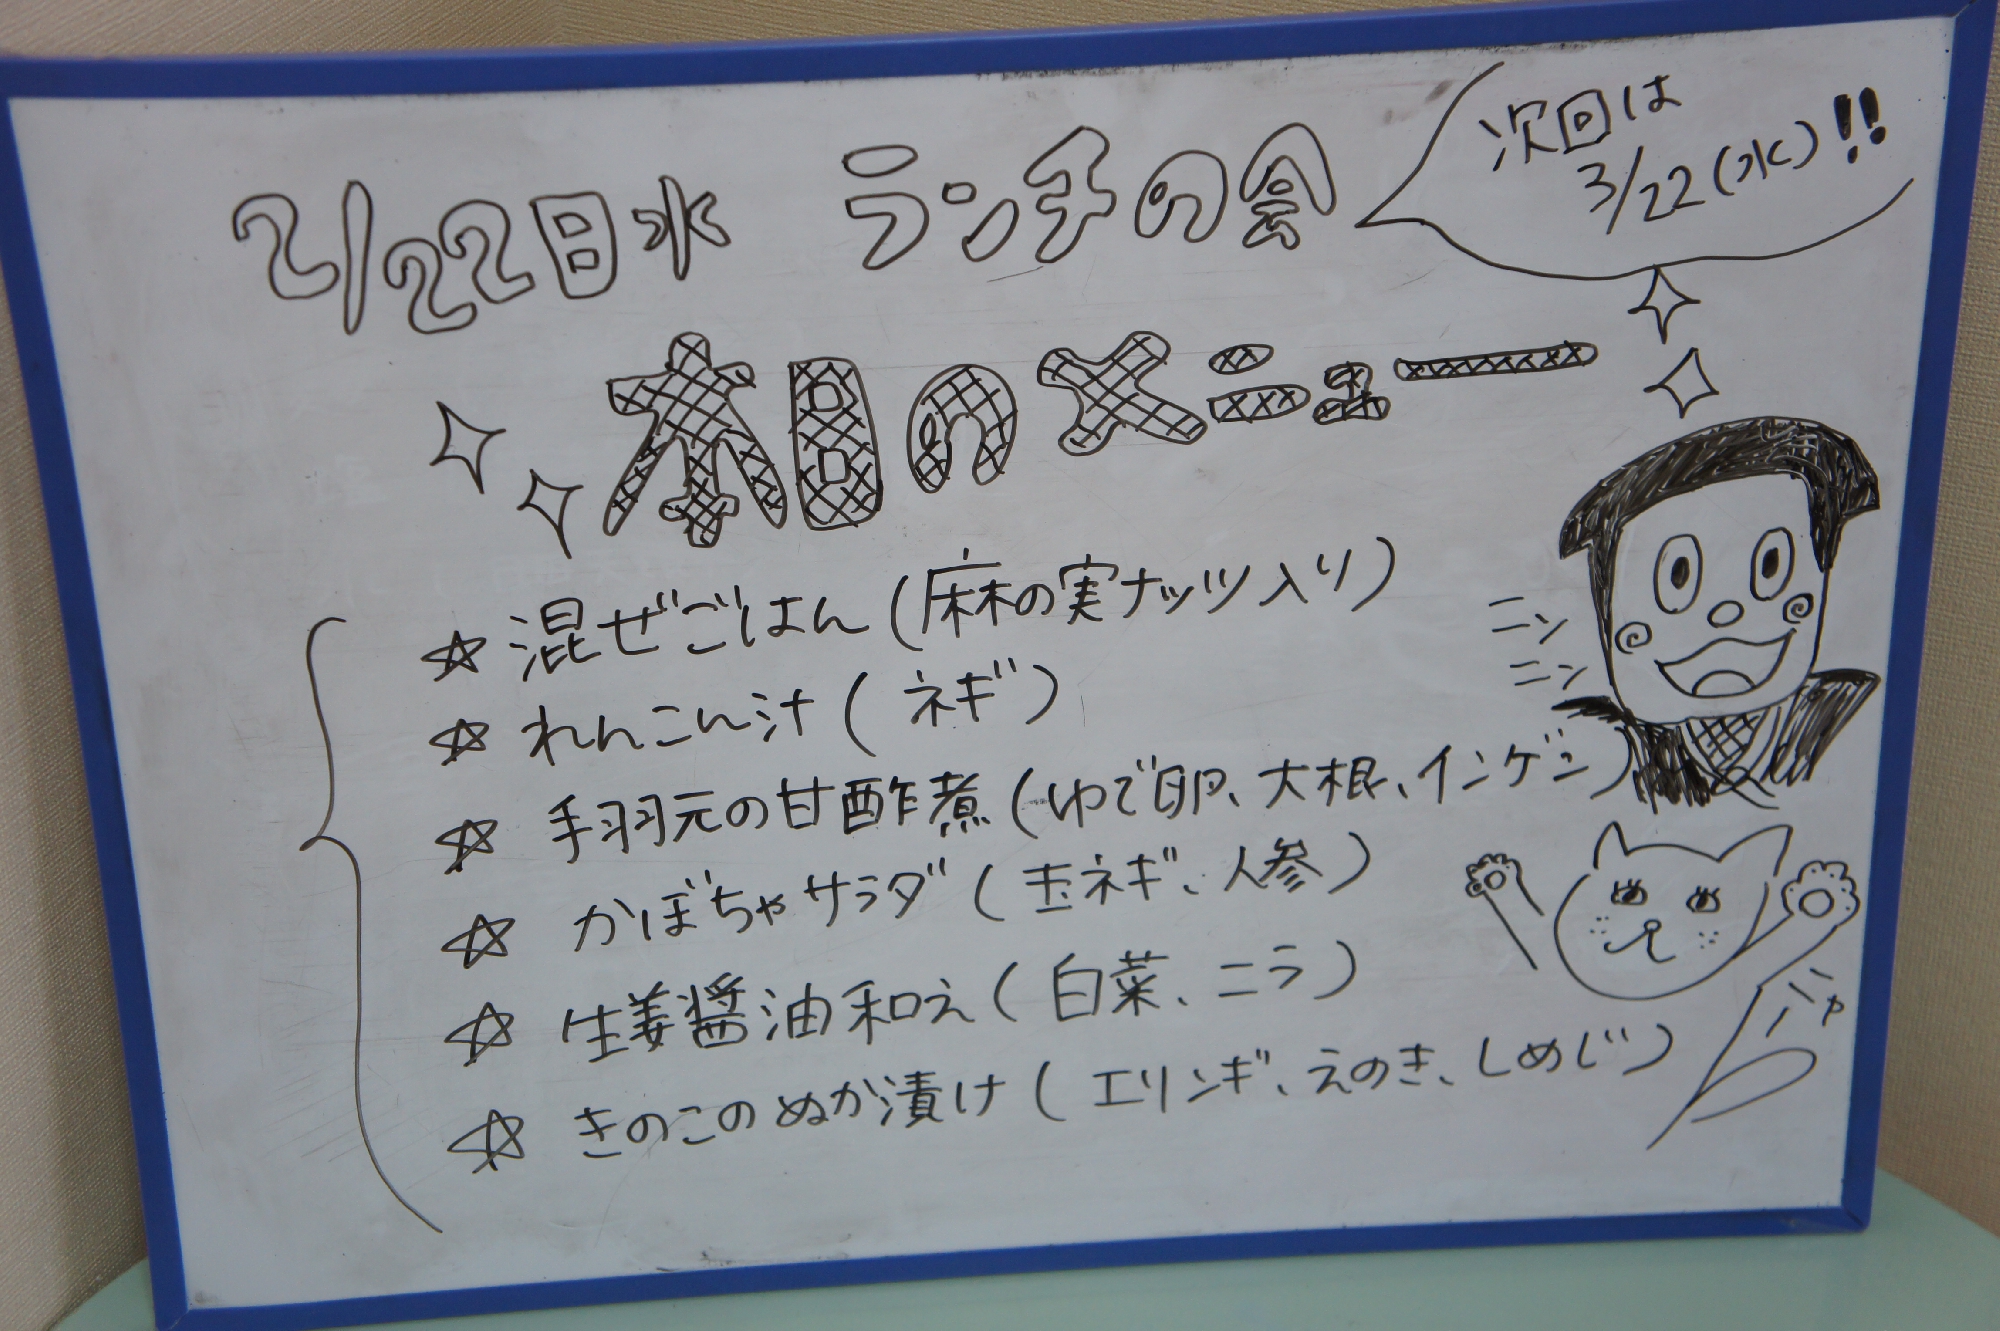 2/22日水 ランチの会
次回は
3/22(水)!!
本日のメニュー
☆ 混ぜごはん(麻の実ナッツ入り)
☆ れんこん汁(ネギ)
☆ 手羽元の甘酢煮(ゆで卵、大根、インゲン)
☆ かぼちゃサラダ(玉ネギ、人参)
☆ 生姜醤油和え(白菜、ニラ)
☆ きのこのぬか漬け(エリンギ、えのき、しめじ)
ニン
ニン
ニャー